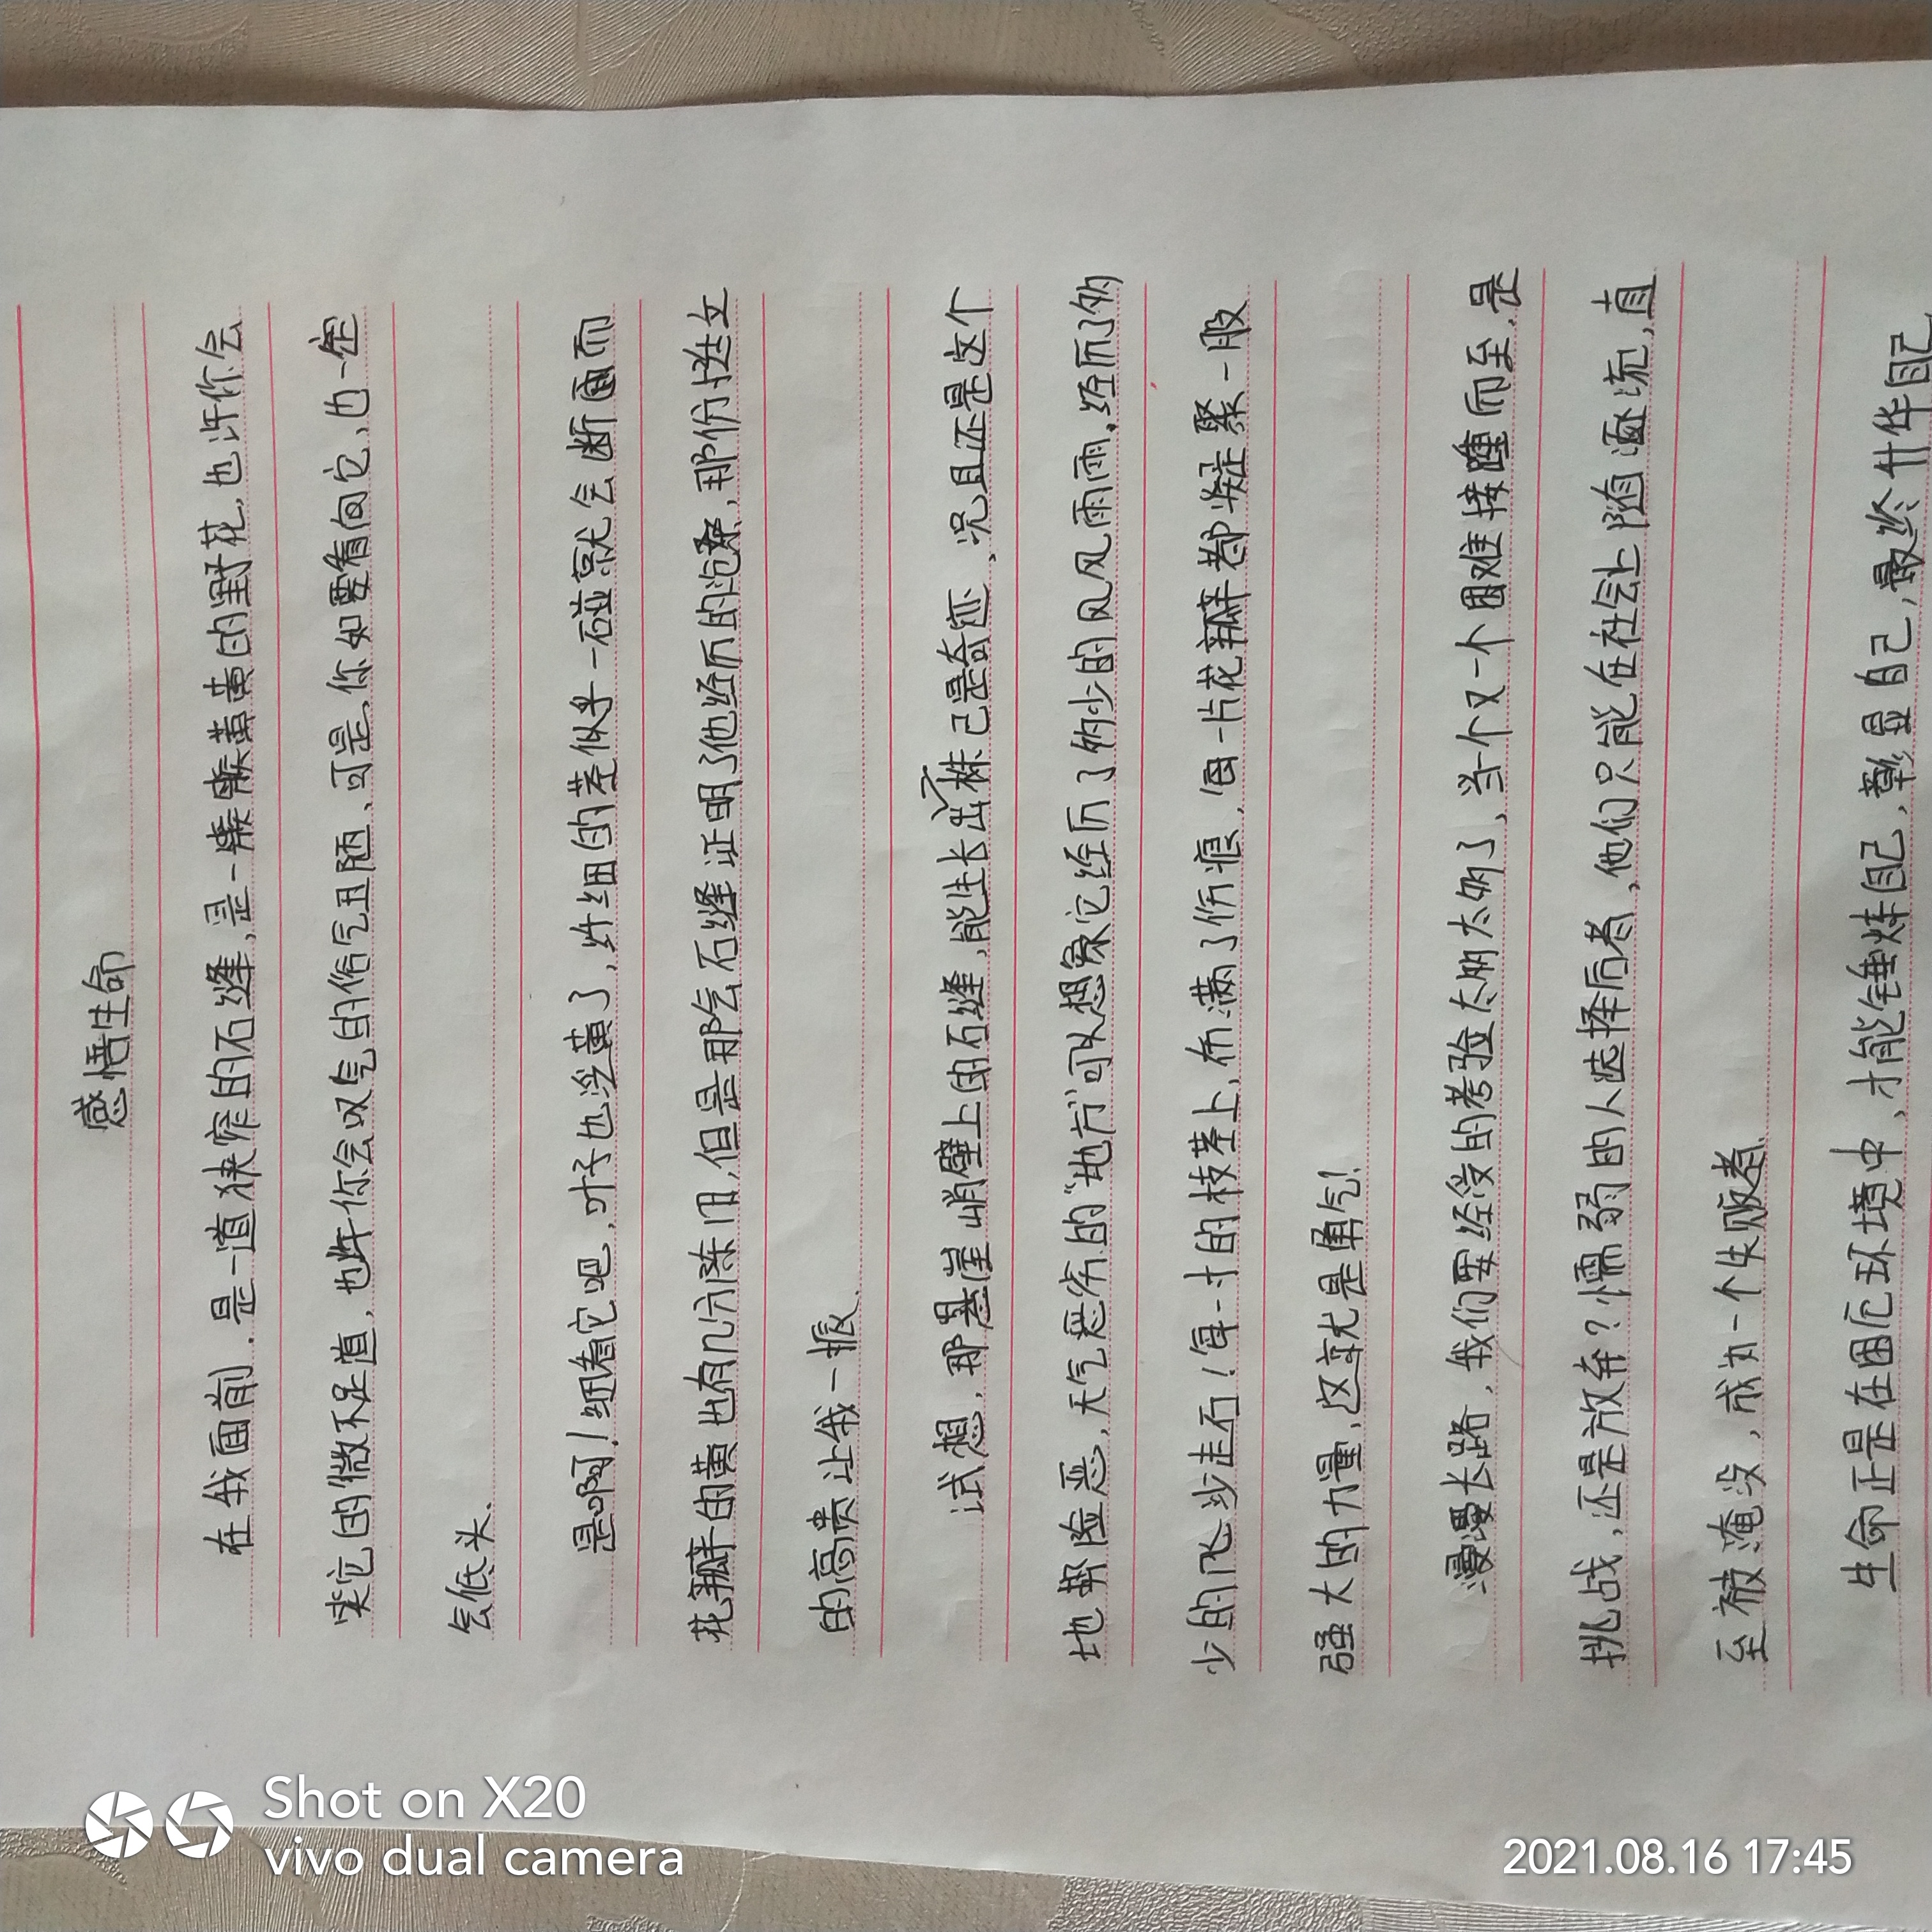 感悟生命
在我面前，是一道狭窄的石缝，是一簇簇黄黄的野花，也许你会
笑它的微不足道，也许你会叹气的俗气丑陋，可是，你如要看向它，也一定
会低头。
是啊！细看它吧，叶子也泛黄了，纤细的茎似乎一碰就会断面而
花瓣的黄也有几分陈旧，但是那会石缝证明了他经历的沧桑，那份挞文
的高贵让我一振。
试想，那悬崖峭壁上的石缝，能生长出株已是奇迹，况且还是这个
地势险恶，天气恶劣的"地方"可以想象它经历了多少的风风雨雨，经历了多
少的飞沙走石！每一寸的枝茎上，布满了伤痕，每一片花瓣都凝聚一股
强大的力量，这就是勇气！
漫漫长路，我们要经受的考验太多太多了，当一个又一个困难接踵而至，是
挑战，还是放弃？懦弱的人选择后者，他们只能在社会上随逐流，直
至被淹没，成为一个失败者。
生命正是在困厄环境中，才能锤炼自己，彰显自己，最终升华自己
Shot on X20
vivo dual camera
2021.08.16 17:45